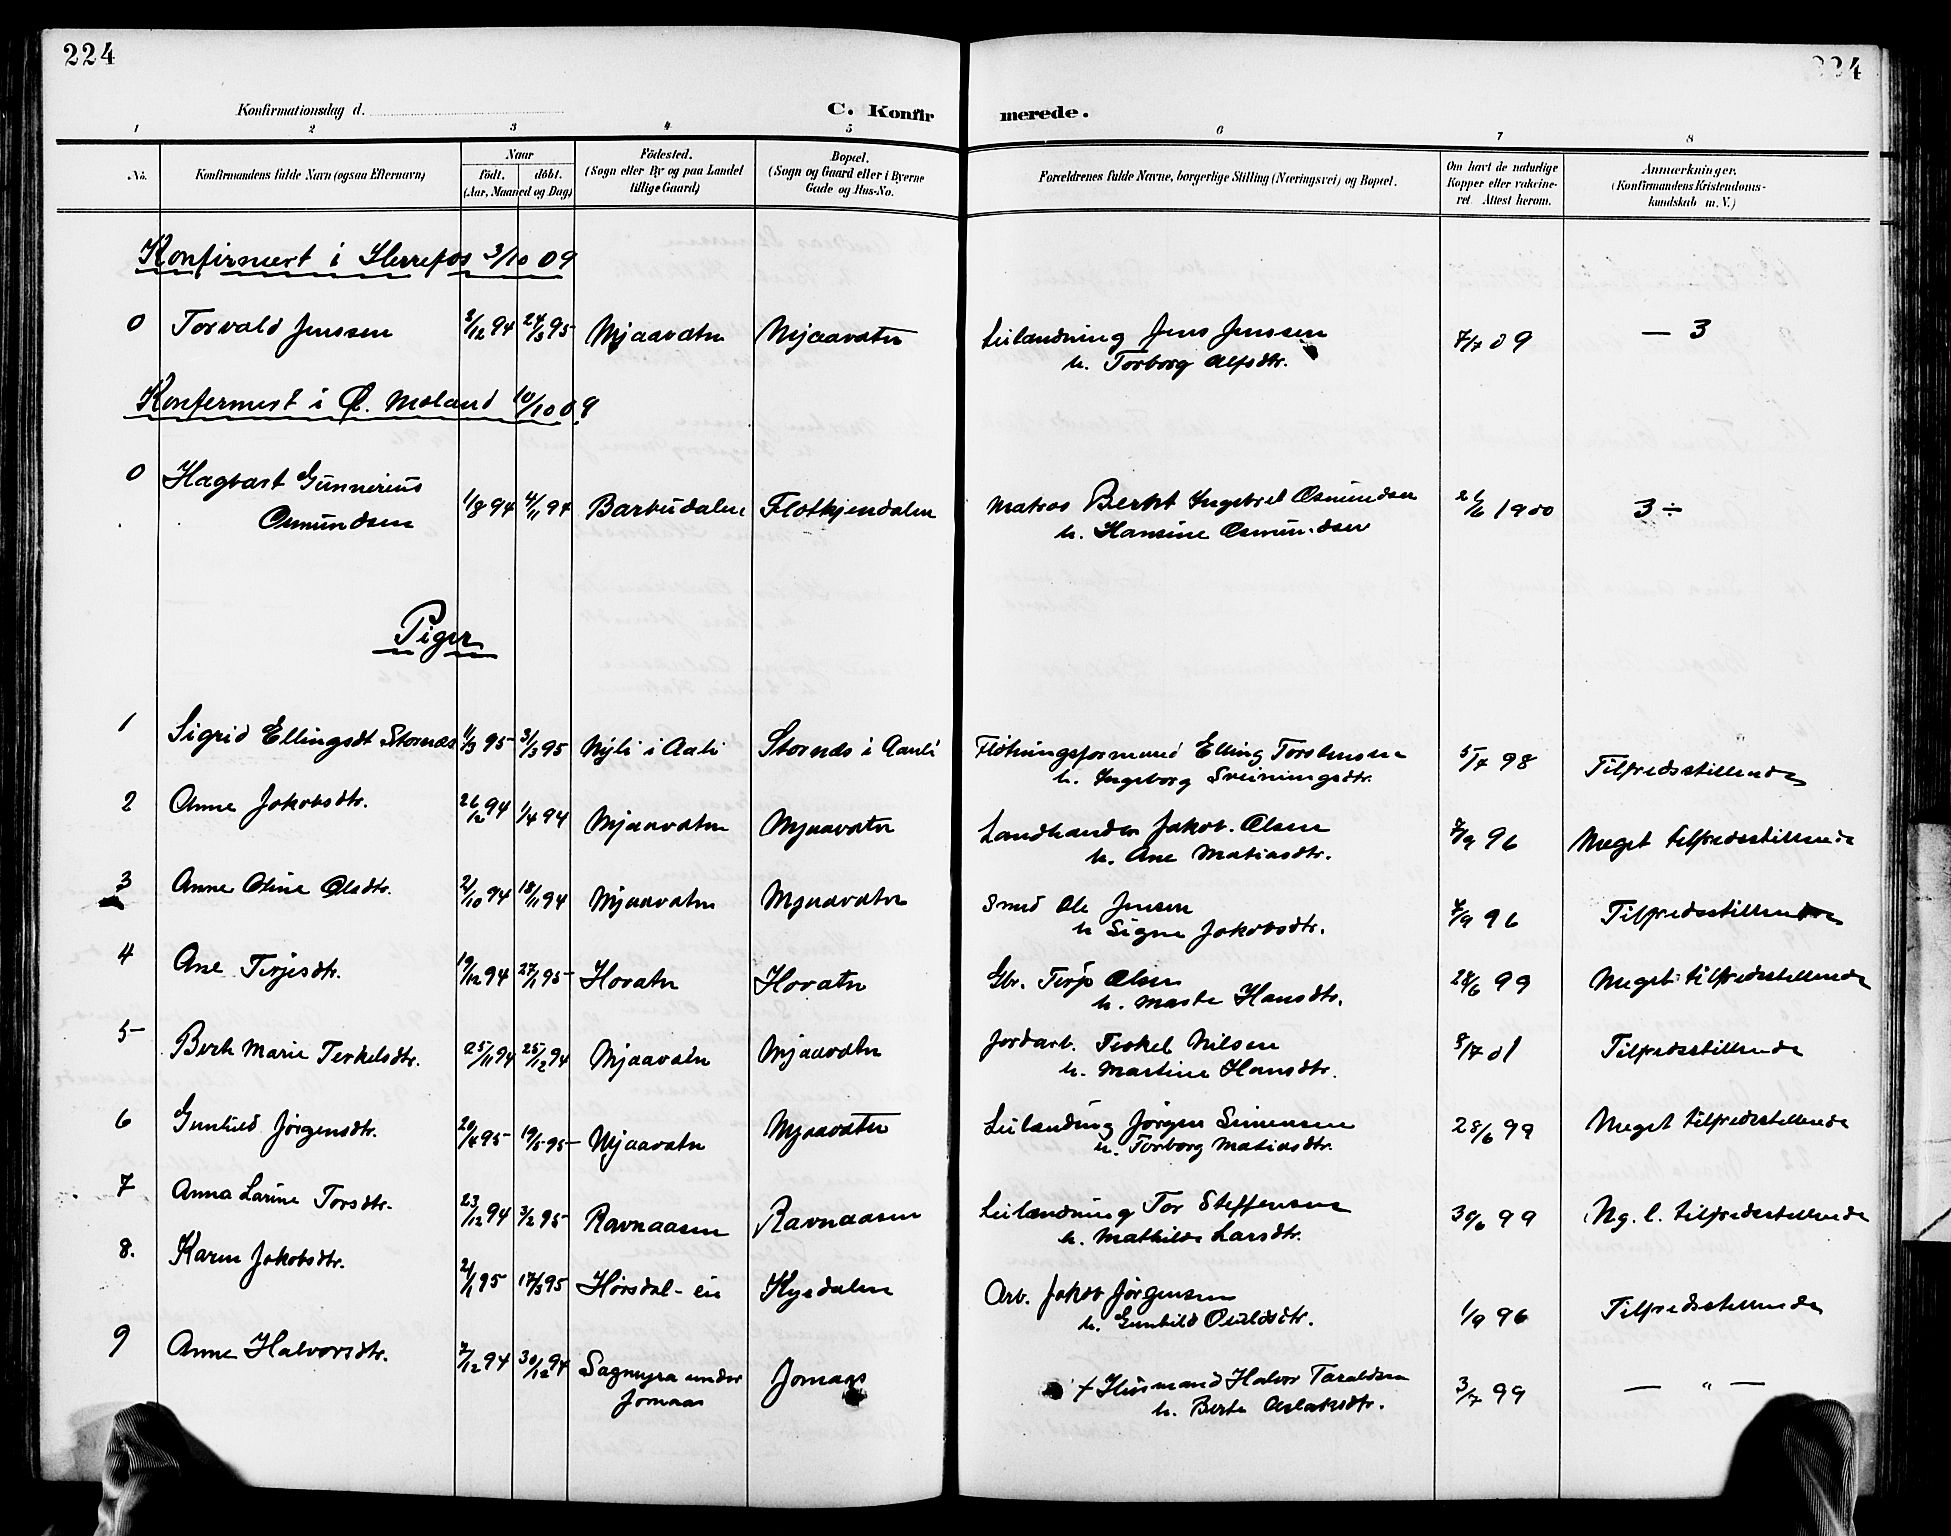 224
224
Konfirmationsdag d.
C. Konfir
merede.
1 2 3 4 5 6 7 8
No.
Konfirmandens fulde Navn (ogsaa Efternavn)
Naar
födt. döbt.
(Aar, Maaned og Dag)
Födested.
(Sogn eller By og paa Landet
tillige Gaard)
Bopæl.
(Sogn og Gaard eller i Byerne
Gade og Hus-No.
Forældrenes fulde Navne, borgerlige Stilling (Næringsvei) og Bopæl.
Om havt de naturlige
Kopper eller vakcine-
ret. Attest herom.
Anmærkninger.
(Konfirmandens Kristendoms-
kundskab m. V.)
Konfirmert i Herrefos 3/10 09
0 Torvald Jenssen 2/12 94 24/3 95 Mjaavatn Mjaavatn Leilænding Jens Jenssen 7/7 09 — 3
h. Torborg Alfsdtr.
Konfermert i Ø. Moland 10/10 09
0 Hagbart Gunnerius
Osmundsen 1/8 94 4/11 94 Barbudalen Flotkjendalen Matros Bernt Ingebret Osmundsen 21/6 1900 3÷
h. Hansine Osmundsen
Piger
1 Sigrid Ellingsdt Stornæs 11/3 95 31/3 95 Nyli i Aali Stornæs i Aamli Fløtningsformand Elling Torstensen 5/7 98 Tilfredsstillende
h. Ingeborg Sveiningsdtr.
2 Anne Jakobsdtr. 26/2 94 1/4 94 Mjaavatn Mjaavatn Landhandler Jakob Olsen 7/9 96 Meget tilfredsstillende
h. Ane Matiasdtr.
3 Anne Oline Olsdtr. 21/10 94 18/11 94 Mjaavatn Mjaavatn Smed Ole Jensen 7/9 96 Tilfredsstillende
h Signe Jakobsdtr.
4 Ane Terjesdtr. 19/12 94 27/1 95 Hovatn Hovatn Gbr. Terje Olsen 28/6 99 Meget tilfredsstellende
h. Marte Hansdtr.
5 Berte Marie Terkelsdtr. 25/11 94 25/12 94 Mjaavatn Mjaavatn Jordarb. Terkel Nilsen 8/7 01 Tilfredsstillende
h. Martine Hansdtr.
6 Gunhild Jørgensdtr. 20/4 95 19/5 95 Mjaavatn Mjaavatn Leilænding Jørgen Simensen 28/6 99 Meget tilfredsstellende
h. Torborg Matiasdtr.
7 Anna Larine Torsdtr. 23/12 94 3/2 95 Ravnaasen Ravnaasen Leilænding Tor Steffensen 30/6 99 Ng. l. tilfredsstellende
h. Mathilde Larsdtr.
8. Karen Jakobsdtr. 2/1 95 17/3 95 Hørsdal-ei Kyrdalen Arb. Jakob Jørgensen 1/9 96 Tilfredsstillende
h. Gunhild Osuldsdtr.
9 Anne Halvorsdtr. 2/12 94 30/12 94 Sagmyra under
Jomaas Jomaas + Husmand Halvor Taraldsen 3/7 99 — " —
h. Berte Aslaksdtr.